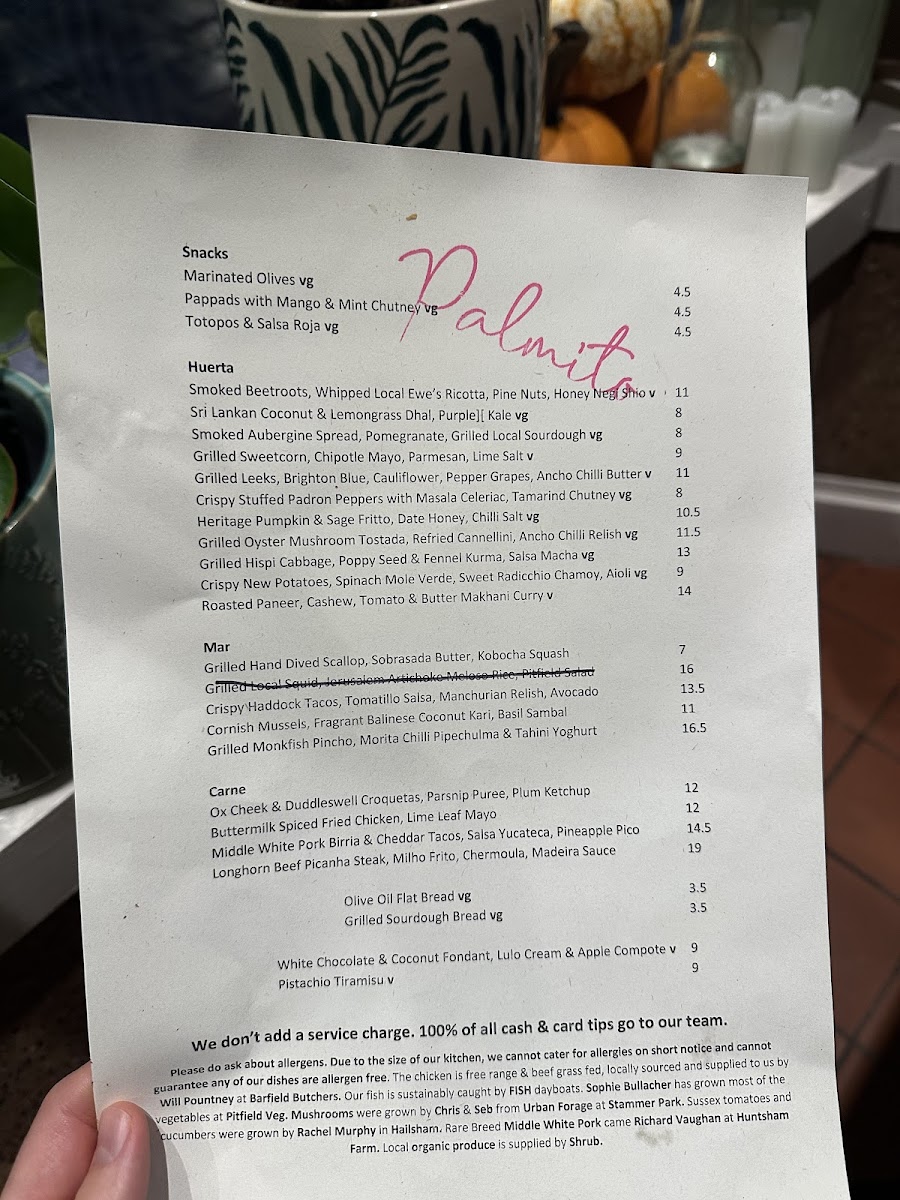 Palmito
Snacks
Marinated Olives vg 4.5
Pappads with Mango & Mint Chutney vg 4.5
Totopos & Salsa Roja vg 4.5
Huerta
Smoked Beetroots, Whipped Local Ewe's Ricotta, Pine Nuts, Honey Negi Shio v 11
Sri Lankan Coconut & Lemongrass Dhal, Purple][ Kale vg 8
Smoked Aubergine Spread, Pomegranate, Grilled Local Sourdough vg 8
Grilled Sweetcorn, Chipotle Mayo, Parmesan, Lime Salt v 9
Grilled Leeks, Brighton Blue, Cauliflower, Pepper Grapes, Ancho Chilli Butter v 11
Crispy Stuffed Padron Peppers with Masala Celeriac, Tamarind Chutney vg 8
Heritage Pumpkin & Sage Fritto, Date Honey, Chilli Salt vg 10.5
Grilled Oyster Mushroom Tostada, Refried Cannellini, Ancho Chilli Relish vg 11.5
Grilled Hispi Cabbage, Poppy Seed & Fennel Kurma, Salsa Macha vg 13
Crispy New Potatoes, Spinach Mole Verde, Sweet Radicchio Chamoy, Aioli vg 9
Roasted Paneer, Cashew, Tomato & Butter Makhani Curry v 14
Mar
Grilled Hand Dived Scallop, Sobrasada Butter, Kobocha Squash 7
Grilled Local Squid, Jerusalem Artichoke Meloso Rice, Pitfield Salad 16
Crispy Haddock Tacos, Tomatillo Salsa, Manchurian Relish, Avocado 13.5
Cornish Mussels, Fragrant Balinese Coconut Kari, Basil Sambal 11
Grilled Monkfish Pincho, Morita Chilli Pipechulma & Tahini Yoghurt 16.5
Carne
Ox Cheek & Duddleswell Croquetas, Parsnip Puree, Plum Ketchup 12
Buttermilk Spiced Fried Chicken, Lime Leaf Mayo 12
Middle White Pork Birria & Cheddar Tacos, Salsa Yucateca, Pineapple Pico 14.5
Longhorn Beef Picanha Steak, Milho Frito, Chermoula, Madeira Sauce 19
Olive Oil Flat Bread vg 3.5
Grilled Sourdough Bread vg 3.5
White Chocolate & Coconut Fondant, Lulo Cream & Apple Compote v 9
Pistachio Tiramisu v 9
We don't add a service charge. 100% of all cash & card tips go to our team.
Please do ask about allergens. Due to the size of our kitchen, we cannot cater for allergies on short notice and cannot
guarantee any of our dishes are allergen free. The chicken is free range & beef grass fed, locally sourced and supplied to us by
Will Pountney at Barfield Butchers. Our fish is sustainably caught by FISH dayboats. Sophie Bullacher has grown most of the
vegetables at Pitfield Veg. Mushrooms were grown by Chris & Seb from Urban Forage at Stammer Park. Sussex tomatoes and
cucumbers were grown by Rachel Murphy in Hailsham. Rare Breed Middle White Pork came Richard Vaughan at Huntsham
Farm. Local organic produce is supplied by Shrub.